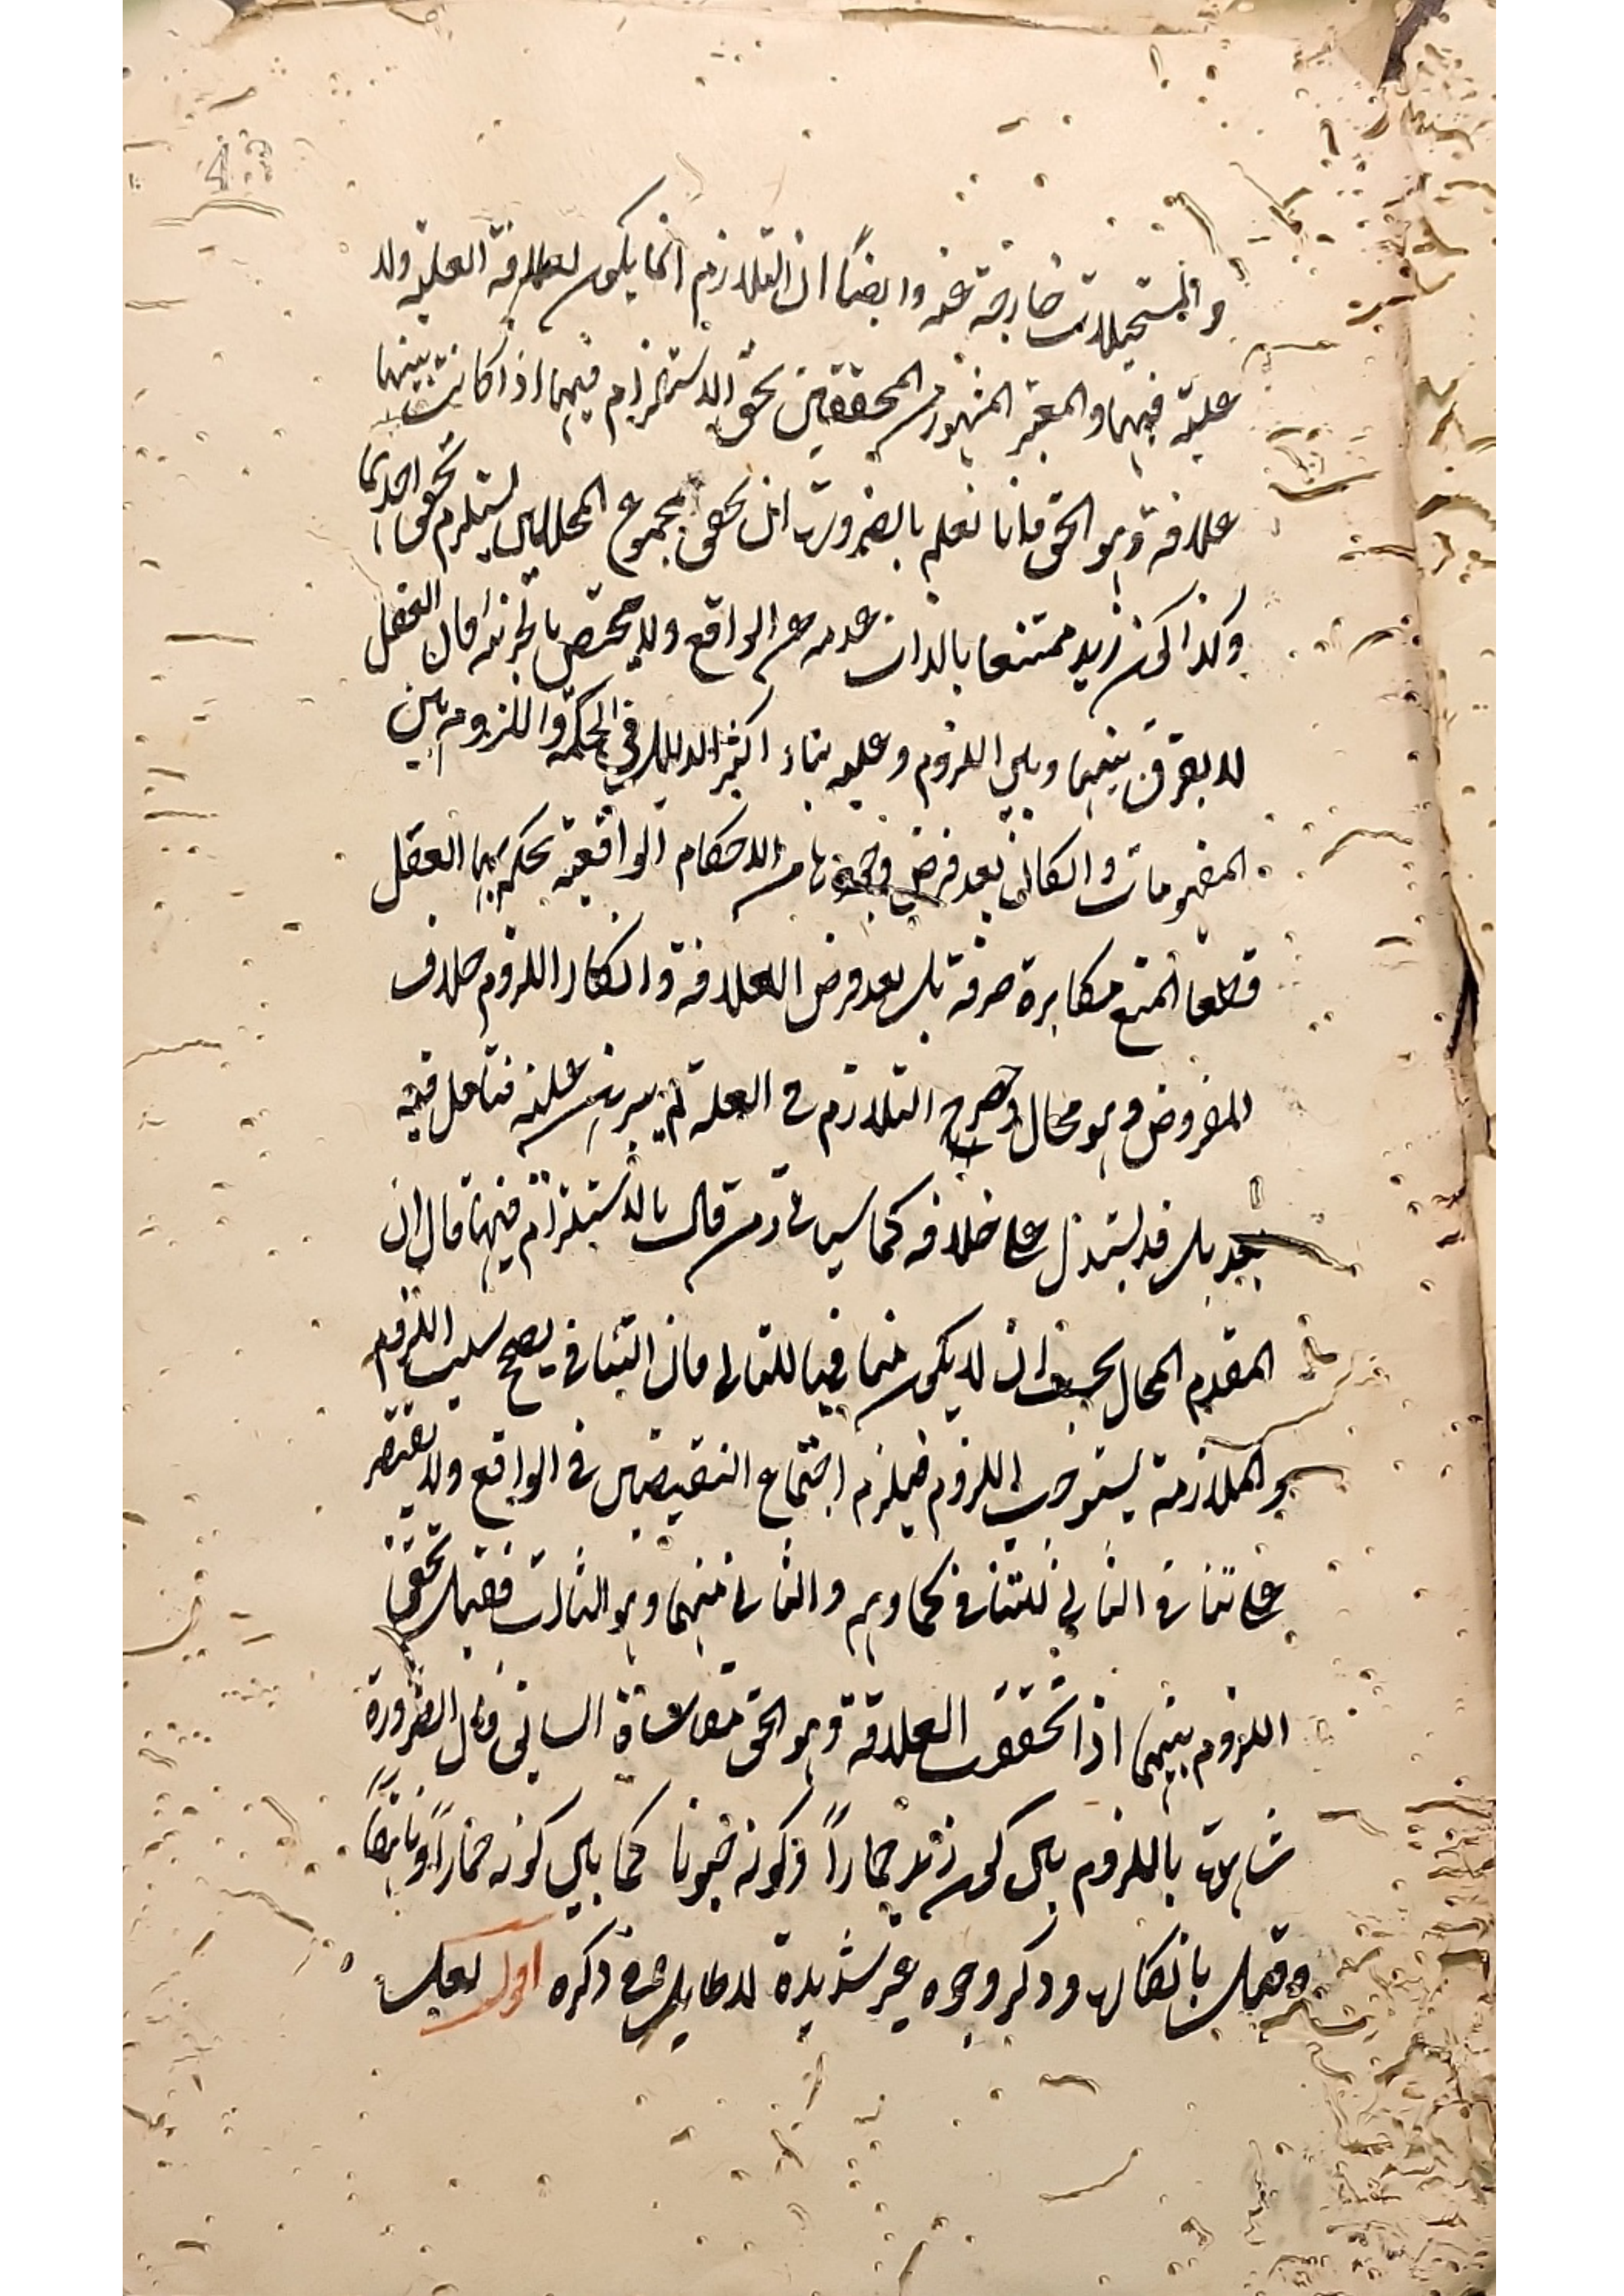 والمستحيلات خارجة عنه وايضاً ان التلازم انما يكون لعلاقة العلية ولا
علية فيهما والمعتبر المشهور من المحققين تحقق الاستلزام فيهما اذا كانت بينهما
علاقة وهو الحق فانا نعلم بالضرورة ان تحقق مجموع المحالين يستلزم تحقق احدهما
وكذا كون زيد ممتنعا بالذات عدمه عن الواقع ولا يختص بالجزئية فان العقل
لا يفرق بينهما وبين اللزوم وعليه بناء اكثر الدلايل في الحكمة واللزوم بين
المفهومات والكائن بعد فرض وجودها من الاحكام الواقعية يحكم بها العقل
قطعا المنع مكابرة صرفة بل بعد فرض العلاقة وانكار اللزوم خلاف
المفروض وهو محال وحصر التلازم في العلة لم يبرهن عليه فتامل فيه
بعد بل قد يستدل على خلافه كما سياتي ومن قال بالاستلزام فيهما قال ان
المقدم المحال يجب ان لا يكون منافيا للتالي فان التنافي يصحح سلب اللزوم
والملازمة يستوجب اللزوم فيلزم اجتماع النقيضين في الواقع ولا يقتصر
على تنافي الثاني للتنافي كما وهم والثاني منهما وهو الثالث فقيل تحقق
اللزوم بينهما اذا تحققت العلاقة وهو الحق الساني فان الضرورة
شاهدة باللزوم بين كون زيد حماراً وكونه حيوانا كما بين كونه حماراً وناهقاً
وقيل بانكاره وذكر وجوه غير سديدة لا طايل في ذكره اول لعل